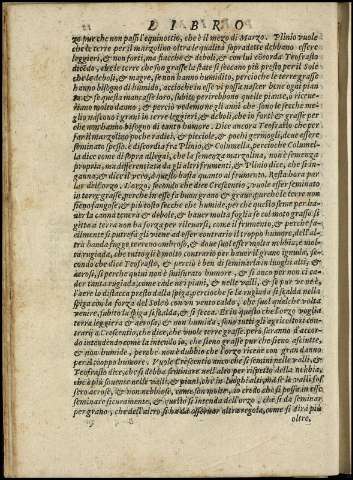 LIBRO
zo pur che non passi l'equinottio, che è il mezo di Marzo. Plinio vuole
che le terre per il marzolino oltra le qualità sopradette debbano essere
leggieri, & non forti, ma fiacche & deboli, & con lui s'accorda Teofrasto
dicendo, che le terre che son grasse la state si seccano più presto per il Sole
che le deboli, & magre, se non hanno humidità, percioche le terre grasse
hanno bisogno di humido, accioche in esse vi possa nascer bene ogni pian
ta, & se questa mancasse loro, subito perirebbono quelle piante, o riceue-
rieno molto danno, & perciò vedemo ne gli anni che sono le secche me-
glio nascono i grani in terre leggieri, & deboli, che in forti & grasse per
che non hanno bisogno di tanto humore. Dice ancora Teofrasto che per
far il marzolino poche radici, & picciole, & pochi germogli, deue essere
seminato spesso. è discordia fra Plinio, & Columella, percioche Colume-
lla dice come di sopra allegai, che la semenza marzolina, non è semenza
propria, ma differentiata da gli altri frumenti, & Plinio dice, che s'in-
ganna, & dice il vero, & questo basta quanto al frumento. Resta hora par
lar dell'orzo. L'orzo, secondo che dice Crescentio, vuole esser seminato
in terre grasse, perche in esse fa buono grano & graue, pur che le terre non
sieno fangose, & più tosto secche che humide, per che questo seme per ha-
uer la canna tenera & debole, & hauer molta foglia se col moto grasso si
gitta a terra non ha forza per rileuarsi, come il frumento, & perche fa-
cilmente si putrefà gli viene ad esser contrario il troppo humore, dall'al-
tra banda fugge terreno ombroso, & doue suol esser molta nebbia, e mol-
ta rugiada, che tutto gli è molto contrario per hauer il grano ignudo, se-
condo che dice Teofrasto, & perciò è ben di seminarla in luoghi alti, &
aerosi, si perche quiui non è suiscerato humore, & si anco per non ci ca-
der tanta rugiada, come cade nei piani, & nelle valli, & se pur ve n'è,
l'aere la distacca presto dalla spiga, percioche se la rugiada si scalda nella
spiga con la forza del Sole, ò con vn vento caldo, che suol qualche volta
venire, subito la spiga si scalda, & si secca. Et in quello che l'orzo voglia
terra leggiera & aerosa, & non humida, sono tutti gli agricoltori con-
trarij a Crescentio, che dice, che vuole terre grasse, però saranno d'accor
do intendendo come la intendo io, che sieno grasse pur che sieno asciutte,
& non humide, perche non è dubbio che l'orzo riceue con gran danno
per il troppo humore. Vuole Crescentio ancora che si semini nelle valli, &
Teofrasto dice, che si debba seminare nell'alto per rispetto della nebbia,
che è più souente nelle valli, & piani, che in luoghi alti, ma se le valli fos
sero aerose, & non nebbiose, come son molte, io credo che si possa in esse
seminare sicuramente, & questo si intenda dell'orzo, che si dà seminar
per grano, che dell'altro si ha da osseruar altra regola, come si dirà più
oltre,